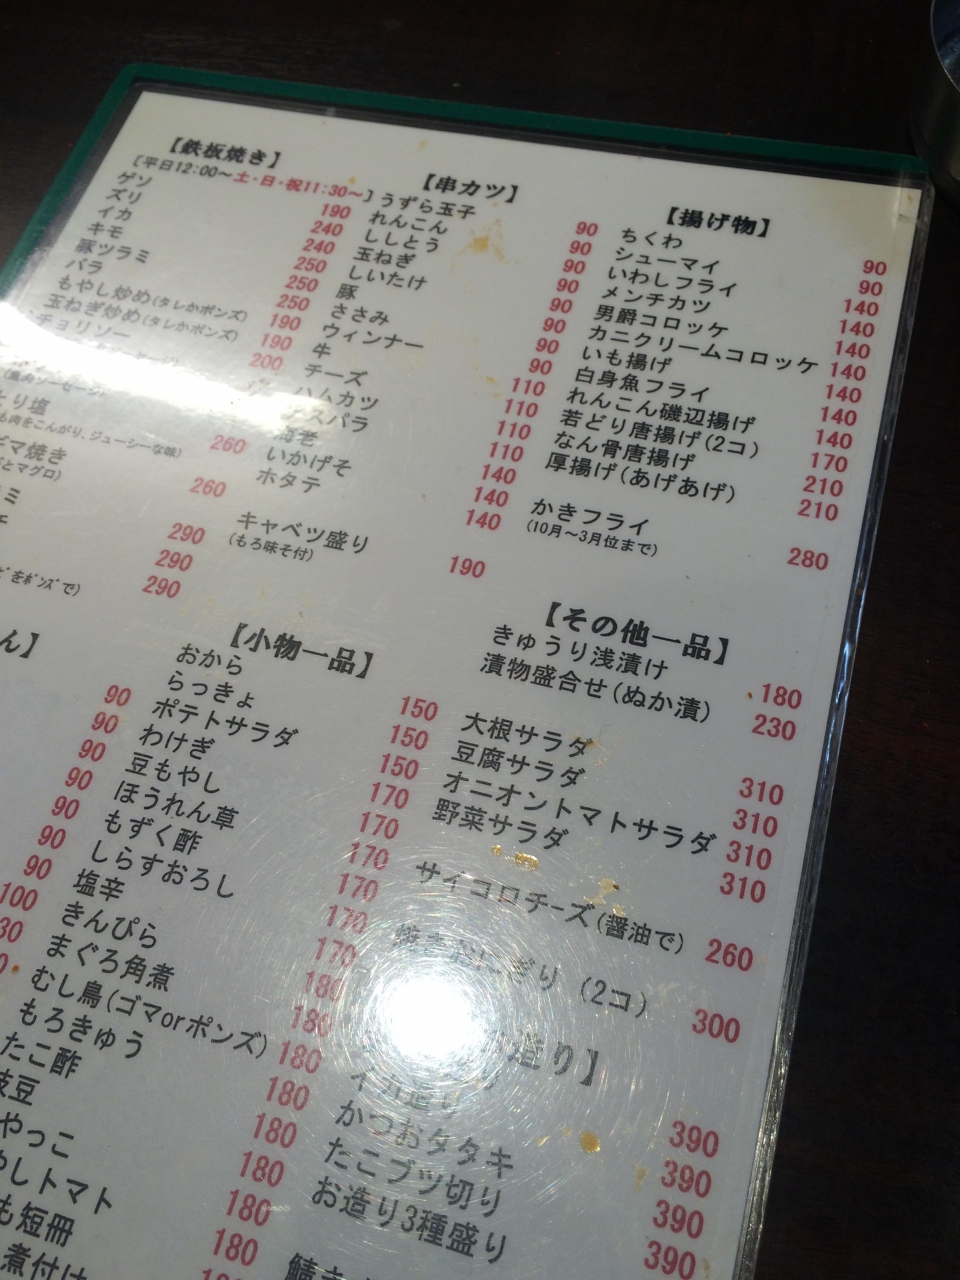 【鉄板焼き】
[平日12:00～土・日・祝11:30～]
ゲソ 190
ズリ 240
イカ 240
キモ 250
豚ツラミ 250
バラ 250
もやし炒め(タレかポンズ) 190
玉ねぎ炒め(タレかポンズ) 190
チョリソー 200
も肉をこんがり、ジューシーな味) 260
マ焼き
とマグロ) 260
ミ 290
290
をポンズで) 290
【串カツ】
うずら玉子 90
れんこん 90
ししとう 90
玉ねぎ 90
しいたけ 90
豚 90
ささみ 90
ウィンナー 110
牛 110
チーズ 110
ハムカツ 110
アスパラ 140
海老 140
いかげそ 140
ホタテ
キャベツ盛り 190
(もろ味そ付)
【揚げ物】
ちくわ 90
シューマイ 90
いわしフライ 140
メンチカツ 140
男爵コロッケ 140
カニクリームコロッケ 140
いも揚げ 140
白身魚フライ 140
れんこん磯辺揚げ 140
若どり唐揚げ(2コ) 170
なん骨唐揚げ 210
厚揚げ(あげあげ) 210
かきフライ 280
(10月～3月位まで)
ん】
90
90
90
90
90
90
90
100
30
【小物一品】
おから 150
らっきょ 150
ポテトサラダ 150
わけぎ 170
豆もやし 170
ほうれん草 170
もずく酢 170
しらすおろし 170
塩辛 170
きんぴら 180
まぐろ角煮 180
むし鳥(ゴマorポンズ) 180
もろきゅう 180
たこ酢 180
枝豆 180
やっこ 180
やしトマト 180
も短冊
煮付け
【その他一品】
きゅうり浅漬け 180
漬物盛合せ(ぬか漬) 230
大根サラダ 310
豆腐サラダ 310
オニオントマトサラダ 310
野菜サラダ 310
サイコロチーズ(醤油で) 260
焼きおにぎり (2コ) 300
造り】
イカ造り 390
かつおタタキ 390
たこブツ切り 390
お造り3種盛り 390